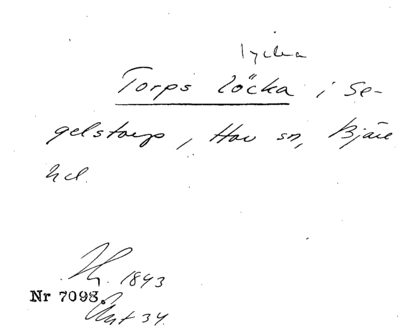 lycka
Torps löcka i Se-
gelstorp, Hov sn, Bjäre
hd.
1843
Nr 7098.
34.